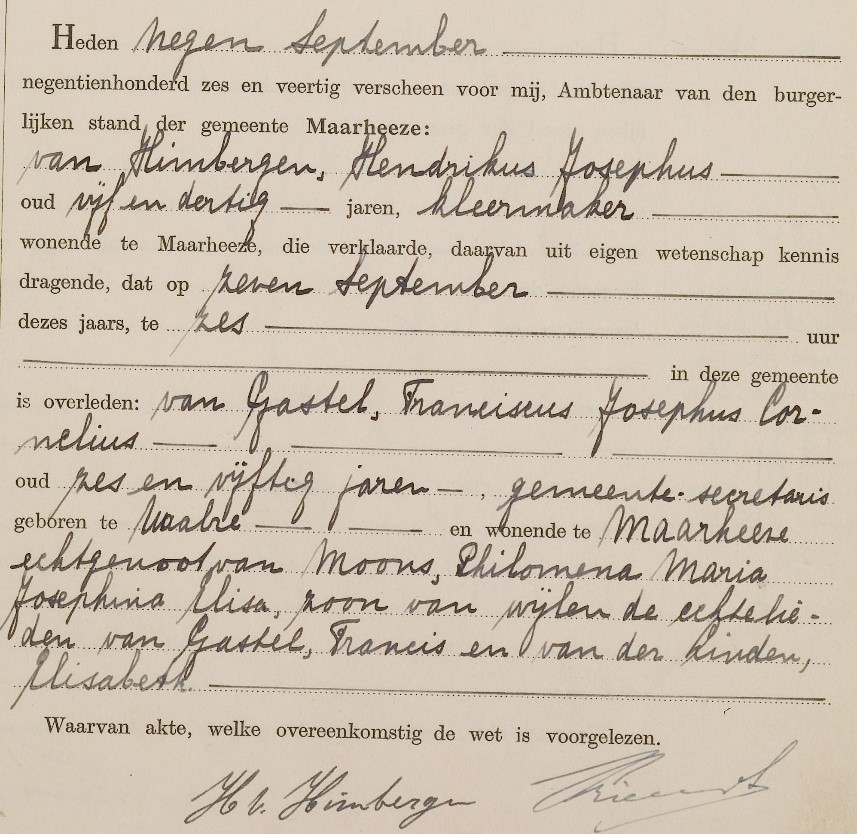 Heden negen September
negentienhonderd zes en veertig verscheen voor mij, Ambtenaar van den burger-
lijken stand der gemeente Maarheeze:
van Himbergen, Hendrikus Josephus
oud vijf en dertig jaren, kleermaker
wonende te Maarheeze, die verklaarde, daarvan uit eigen wetenschap kennis
dragende, dat op zeven September
dezes jaars, te zes uur
in deze gemeente
is overleden: van Gastel, Franciscus Josephus Cor-
nelius
oud zes en vijftig jaren, gemeente-secretaris
geboren te Waalre en wonende te Maarheeze
echtgenoot van Moons, Philomena Maria
Josephina Elisa, zoon van wijlen de echtelie-
den van Gastel, Francis en van der Linden,
Elisabeth.
Waarvan akte, welke overeenkomstig de wet is voorgelezen.
H v. Himbergen